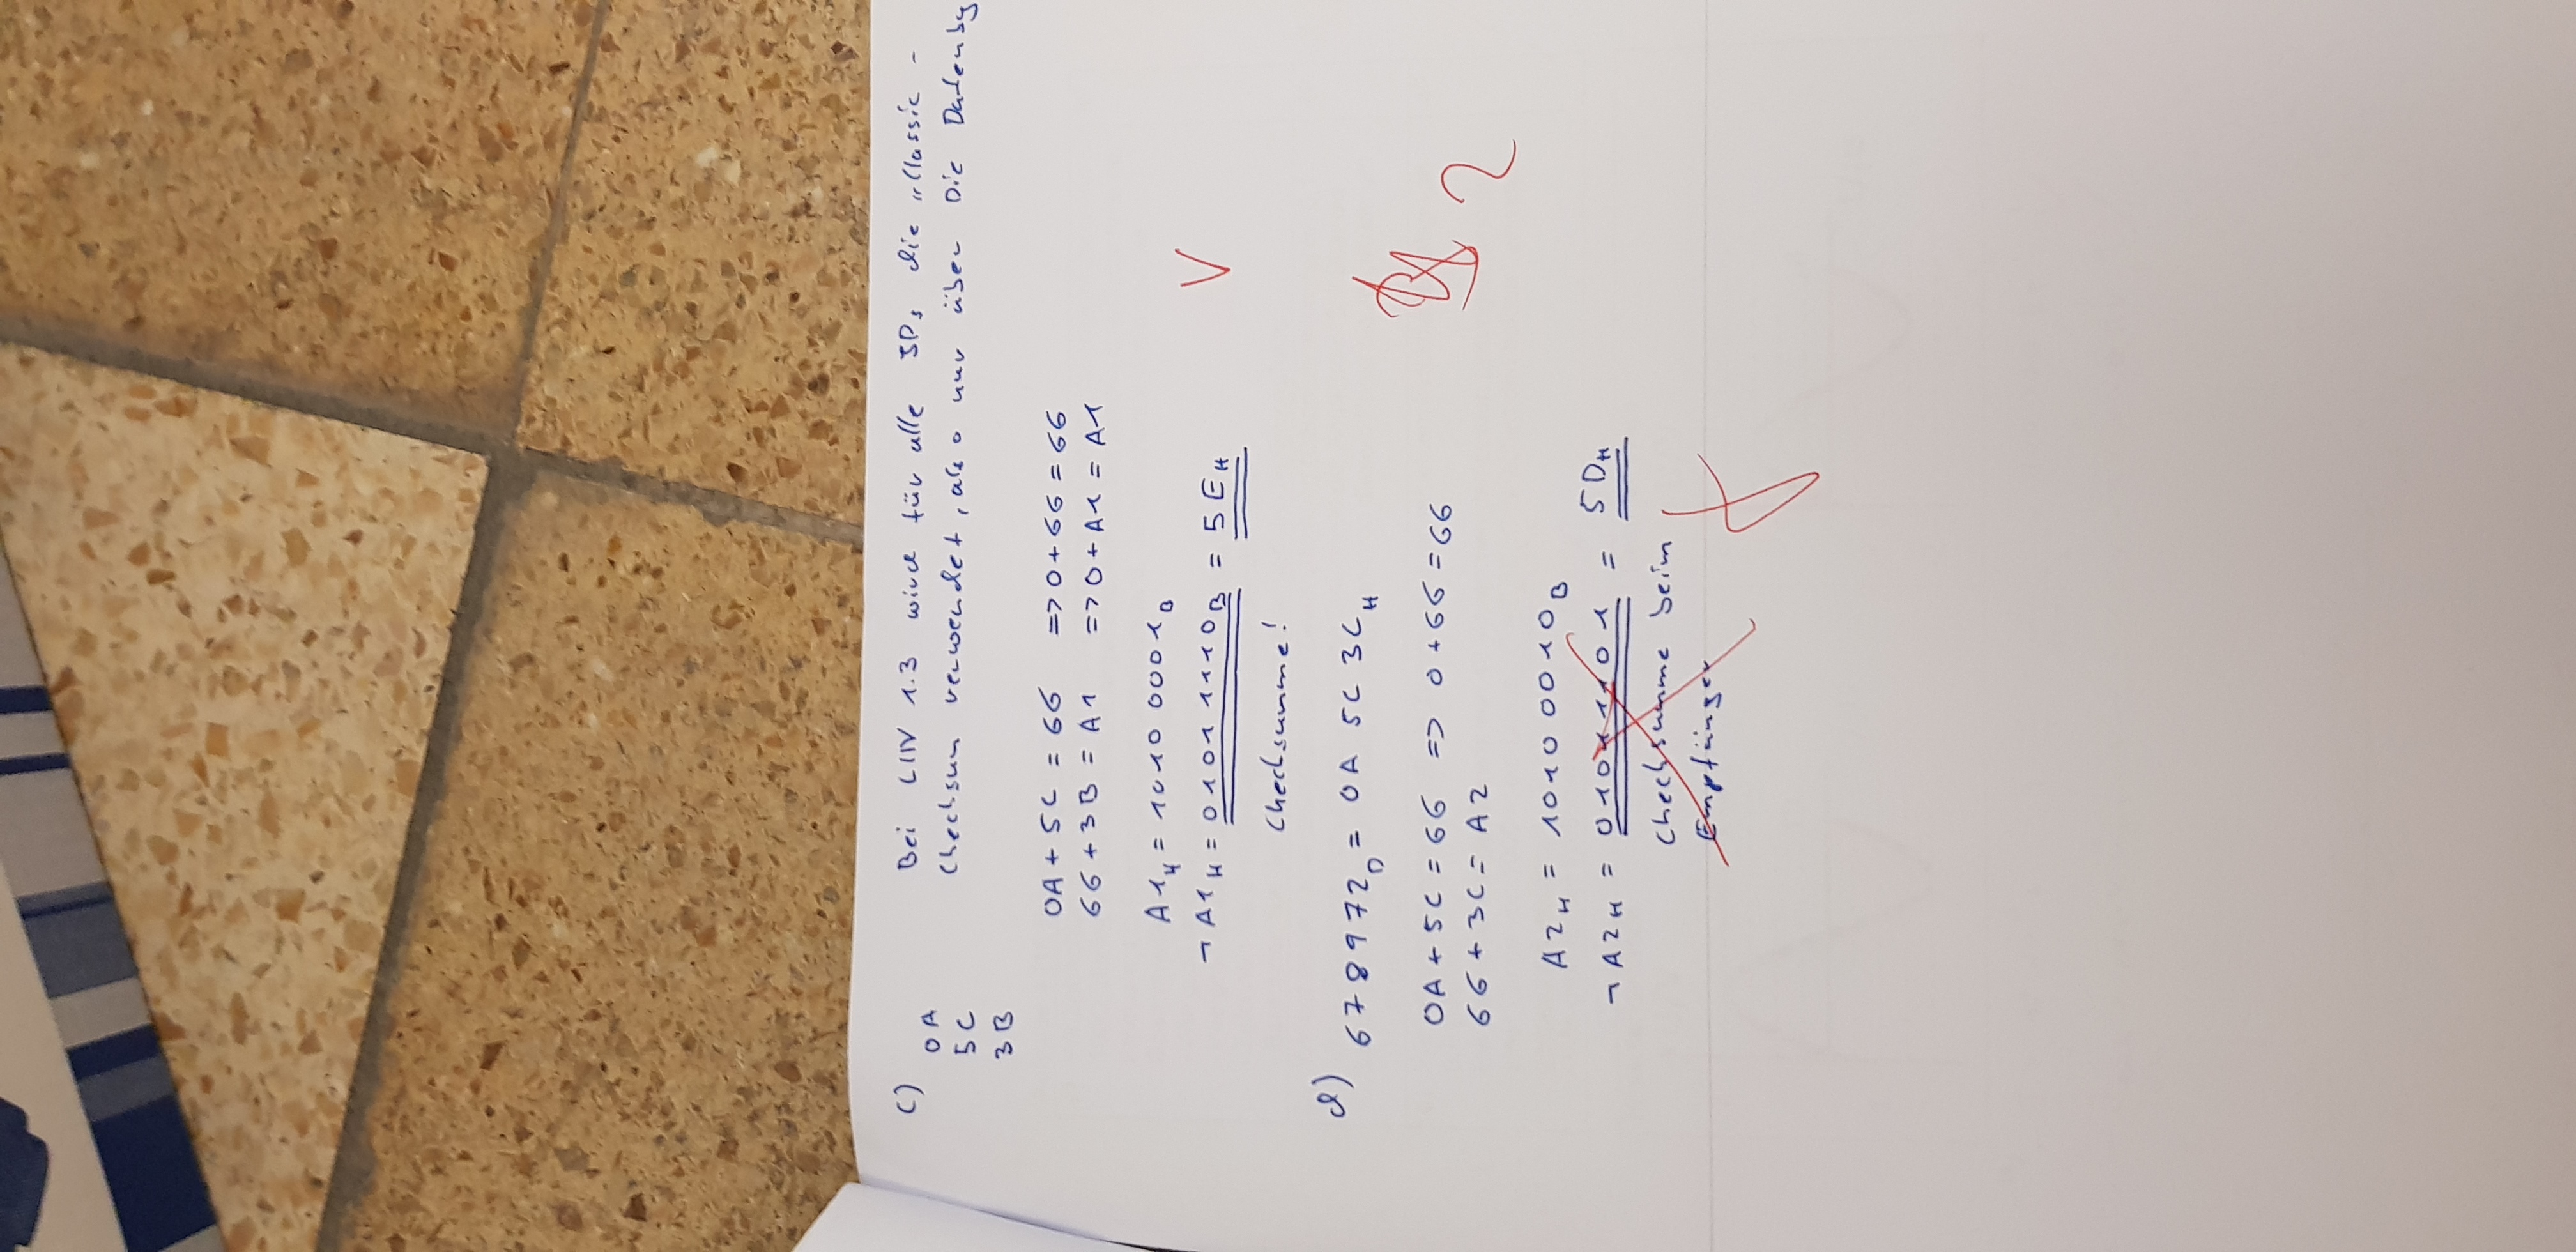 c)
0A
5C
3B
Bei LIN 1.3 wird für alle ID's die "Classic -
Checksum verwendet, also nur über Die Datenby
0A + 5C = 66 => 0 + 66 = 66
66 + 3B = A1 => 0 + A1 = A1
A1H = 1010 0001B
¬A1H = 0101 1110B = 5EH
Checksumme!
V
d)
678972D = 0A 5C 3CH
0A + 5C = 66 => 0 + 66 = 66
66 + 3C = A2
2
A2H = 1010 0010B
¬A2H = 01011101 = 5DH
Checksumme beim
Empfänger
f